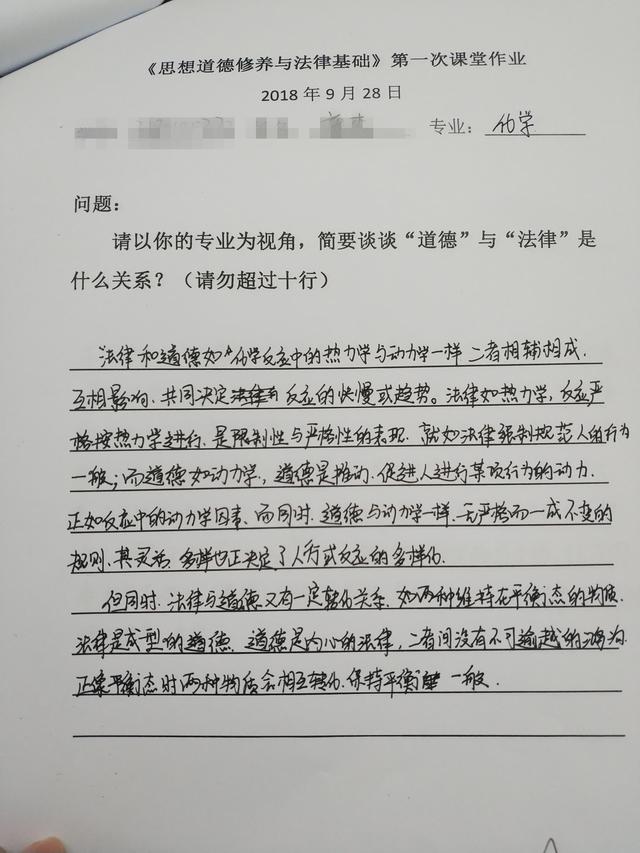 《思想道德修养与法律基础》第一次课堂作业
2018 年 9 月 28 日
专业：化学
问题：
请以你的专业为视角，简要谈谈“道德”与“法律”是
什么关系？（请勿超过十行）
法律和道德如化学反应中的热力学与动力学一样 二者相辅相成.
互相影响、共同决定反应的快慢或趋势。法律如热力学，反应严
格按热力学进行、是限制性与严格性的表现、就如法律强制规范人的行为
一般；而道德如动力学，道德是推动、促进人进行某项行为的动力.
正如反应中的动力学因素、而同时、道德与动力学一样、无严格而一成不变的
规则、其灵活、多样也正决定了人行式反应的多样化.
但同时、法律与道德又有一定转化关系、如两种维持在平衡态的物质.
法律是成型的道德、道德是内心的法律，二者间没有不可逾越的鸿沟.
正像平衡态时两种物质会相互转化、保持平衡 一般.